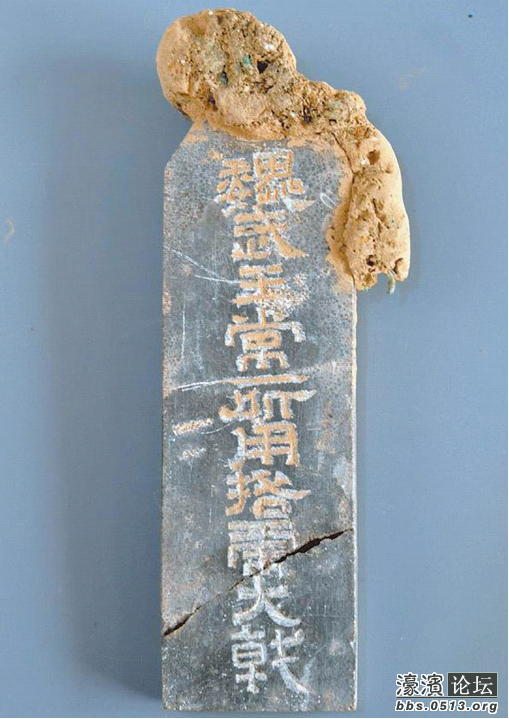 魏武王常所用挌虎大戟
濠滨论坛
bbs.0513.org